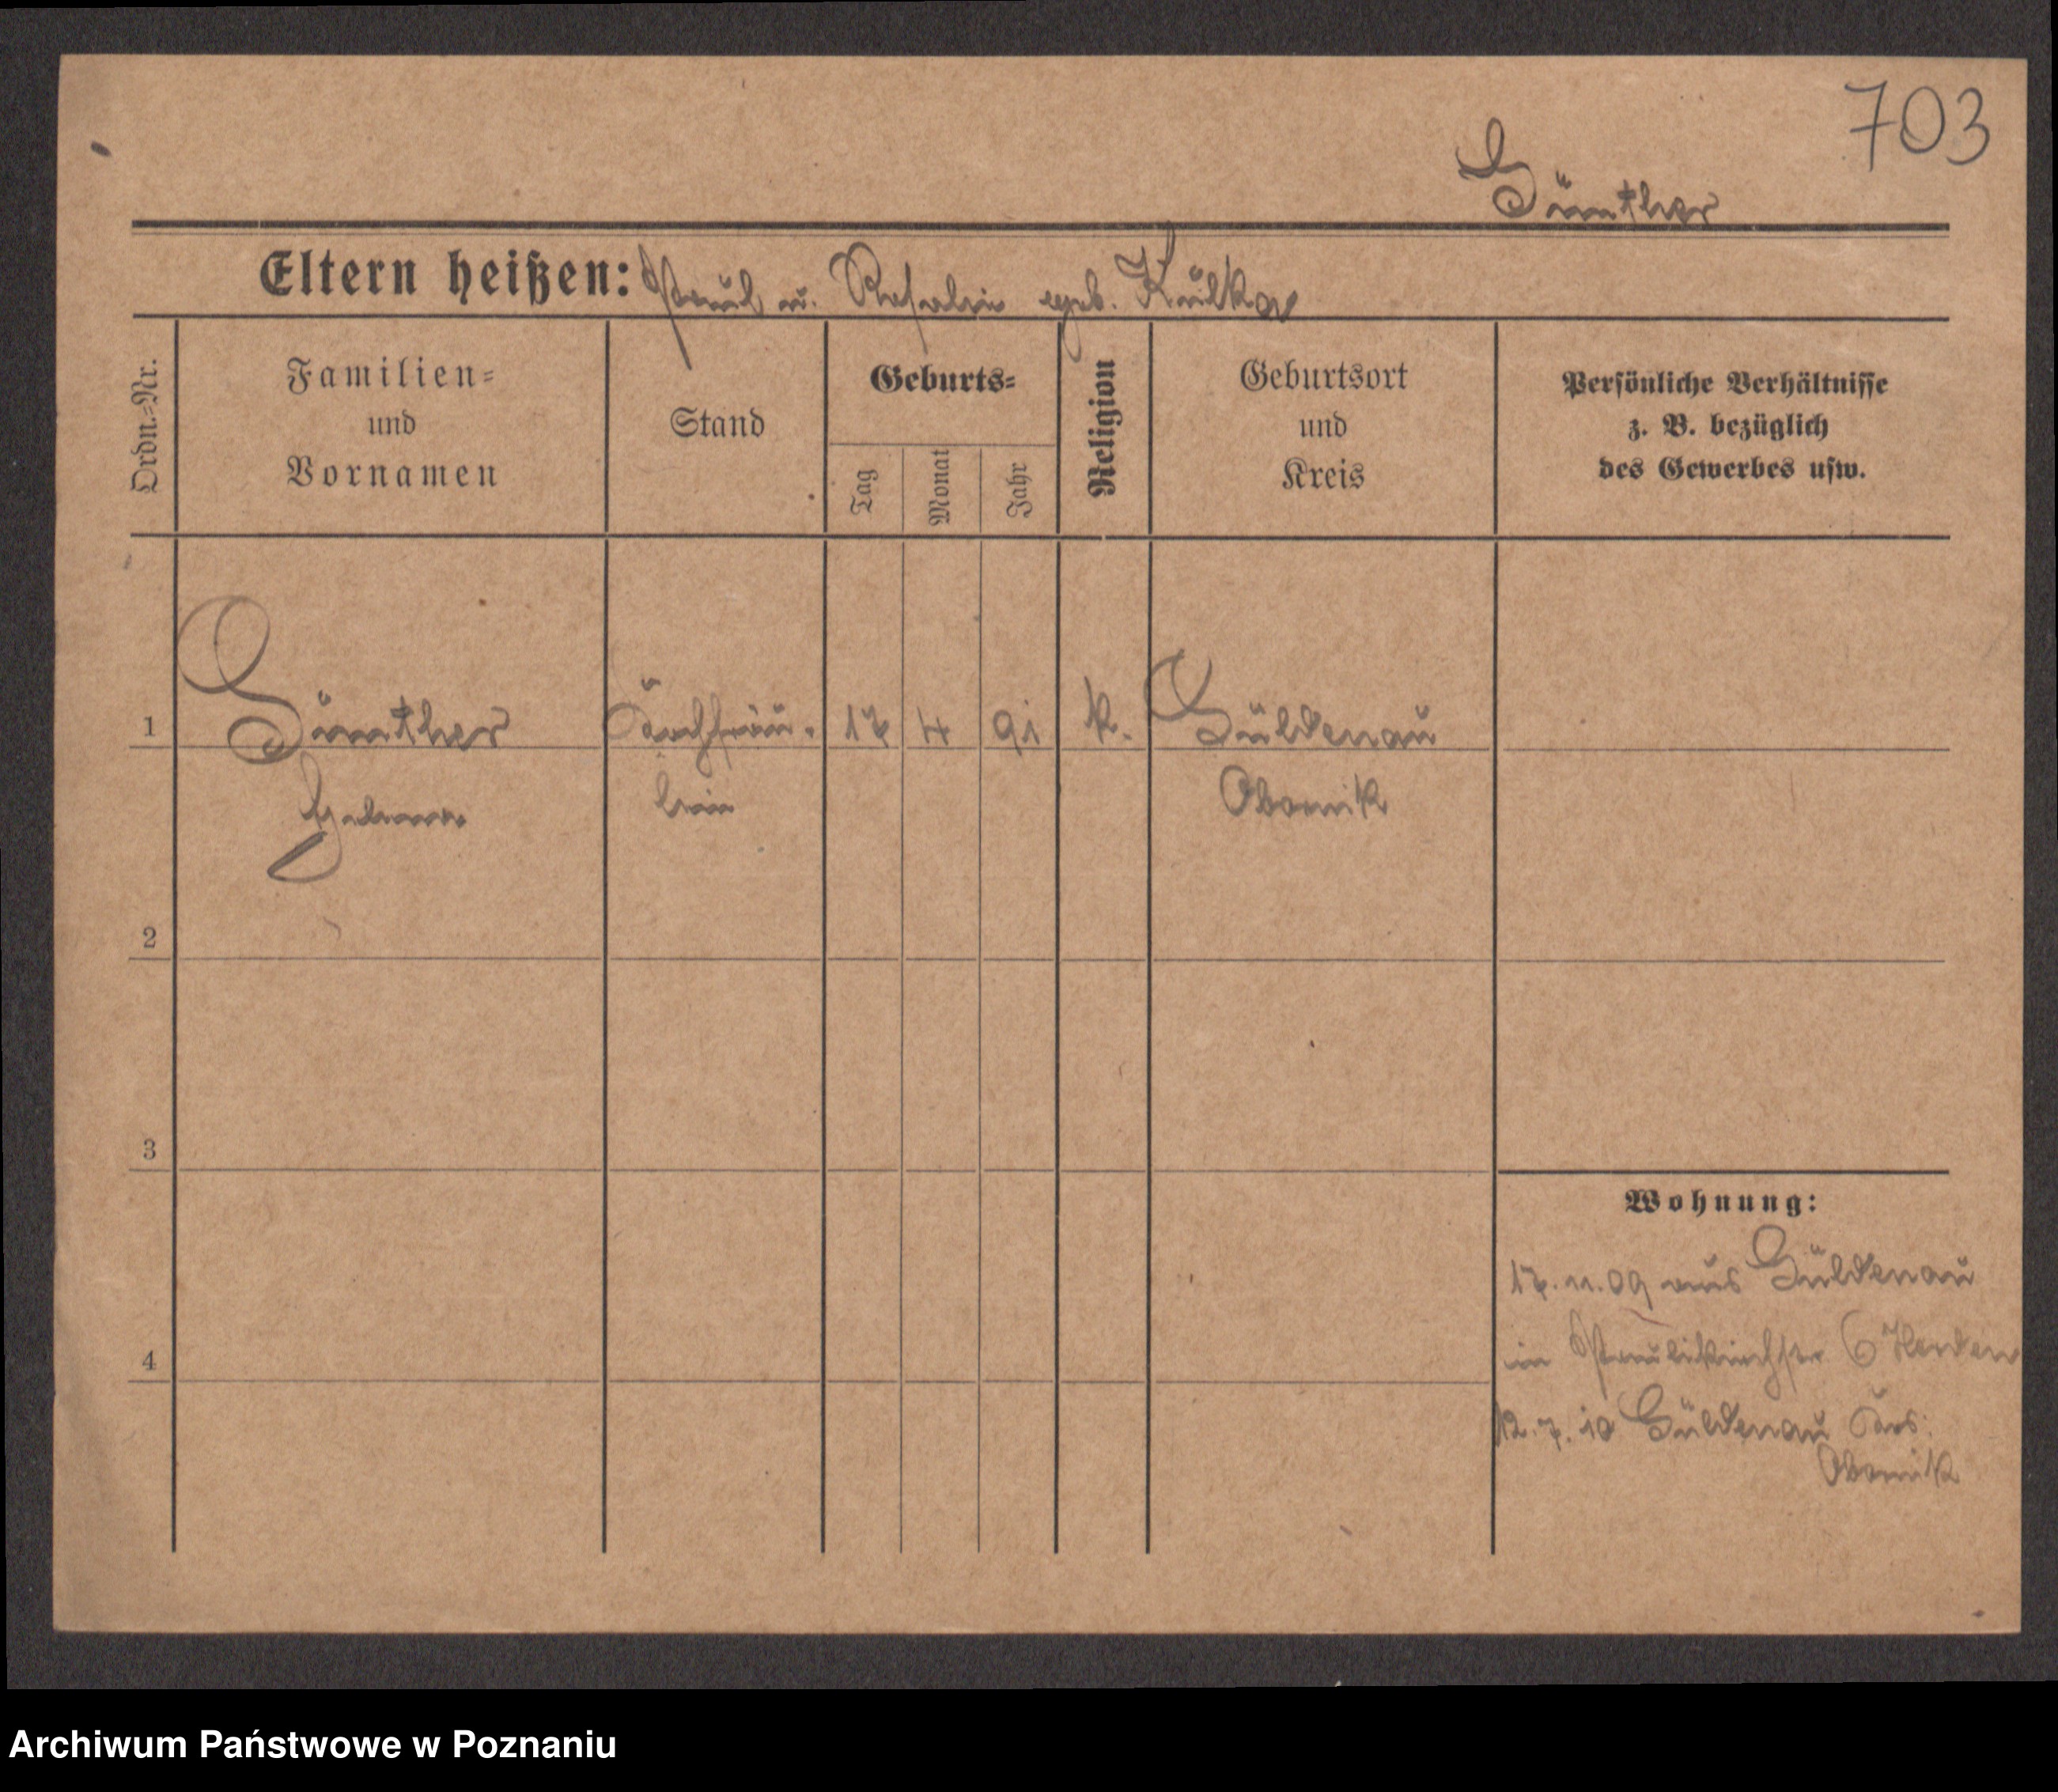 703
Günther
Eltern heißen: Paul u. Rosalie geb. Kulka
Ordn.-Nr.
Familien-
und
Vornamen
Stand
Geburts-
Tag
Monat
Jahr
Religion
Geburtsort
und
Kreis
Persönliche Verhältnisse
z. B. bezüglich
des Gewerbes usw.
1
Günther
Helena
Kochfräu-
lein
17 4 91 k. Güldenau
Obornik
2
3
4
Wohnung:
17. 11. 09 aus Güldenau
in Paulikirchstr 6
12. 7. 10 Güldenau Krs.
Obornik
Archiwum Państwowe w Poznaniu